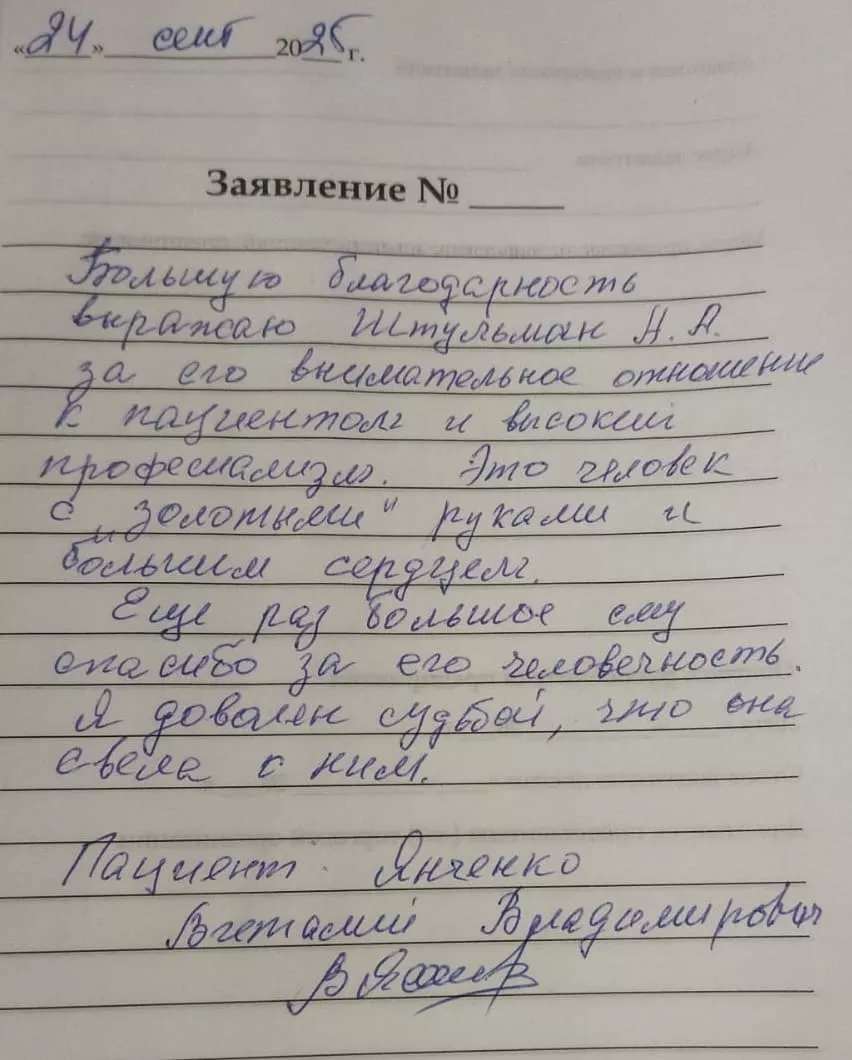 «24» сент 2025 г.
Заявление № ____
Большую благодарность
выражаю Штульман А. А.
за его внимательное отношение
к пациентом и высокий
професиализм. Это человек
с „золотыми" руками и
большим сердцем.
Еще раз большое ему
спасибо за его человечность.
Я доволен судьбой, что она
свела с ним.
Пациент Янченко
Владимирович